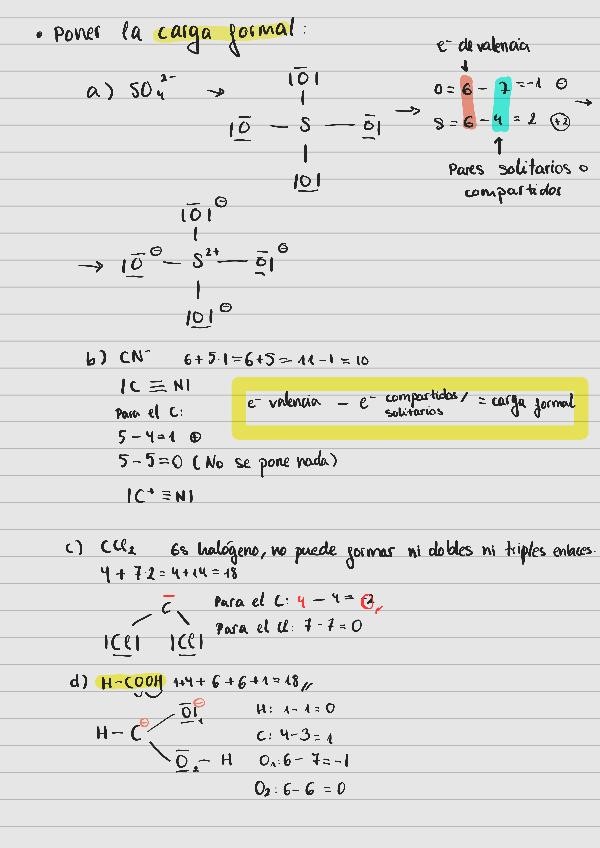 • Poner la carga formal:
e⁻ de valencia
a) SO₄²⁻ →
|O̅|
|O̲̅ — S — O̲̅|
|O̲|
→
O = 6 - 7 = -1 ⊖
S = 6 - 4 = 2 (+2)
→
Pares solitarios o
compartidos
|O̅|⊖
→ |O̲̅⊖ — S²⁺ — O̲̅|⊖
|O̲|⊖
b) CN⁻ 6+5·1=6+5=11-1=10
|C ≡ N|
Para el C:
5-4=1 ⊕
5-5=0 (No se pone nada)
|C⁺ ≡ N|
e⁻ valencia - e⁻ compartidos/solitarios = carga formal
c) CCl₂ Es halógeno, no puede formar ni dobles ni triples enlaces.
4+7·2=4+14=18
C̅
|C̲l| |C̲l|
Para el C: 4 - 4 =
Para el Cl: 7-7=0
d) H-COOH 1+4+6+6+1=18
O̅|₁⊖
H - C⊖
O̲̅₂ - H
H: 1-1=0
C: 4-3=1
O₁: 6-7=-1
O₂: 6-6=0